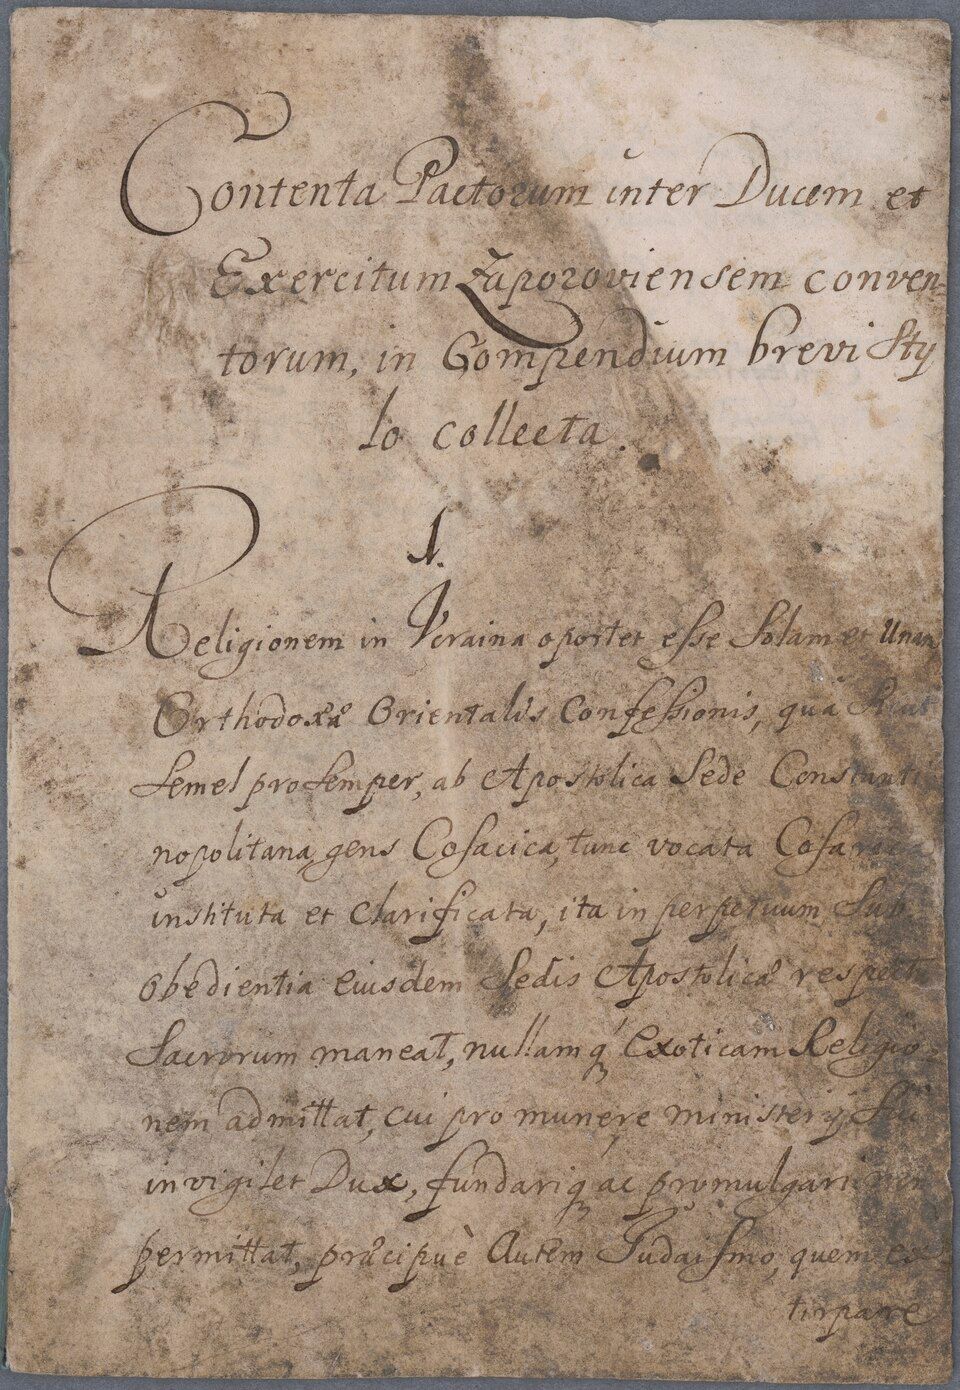 Contenta Pactorum inter Ducem et
Exercitum Zaporoviensem conven-
torum, in Compendium brevi Sty
lo collecta.
1.
Religionem in Vcraina oportet esse Solam et Unam
Orthodoxæ Orientalis Confessionis, quâ Sicut
Semel pro Semper, ab Apostolica Sede Constanti
nopolitana gens Cosacica, tunc vocata
instituta et Clarificata, ita in perpetuum Sub
obedientia eiusdem Sedis Apostolicæ respectu
Sacrorum maneat, nullamq́ Exoticam Religio-
nem admittat, cui pro munere ministerij Sui
invigilet Dux, fundariq ac promulgari non
permittat, præcipuè Autem Judaismo, quem ex
tirpare